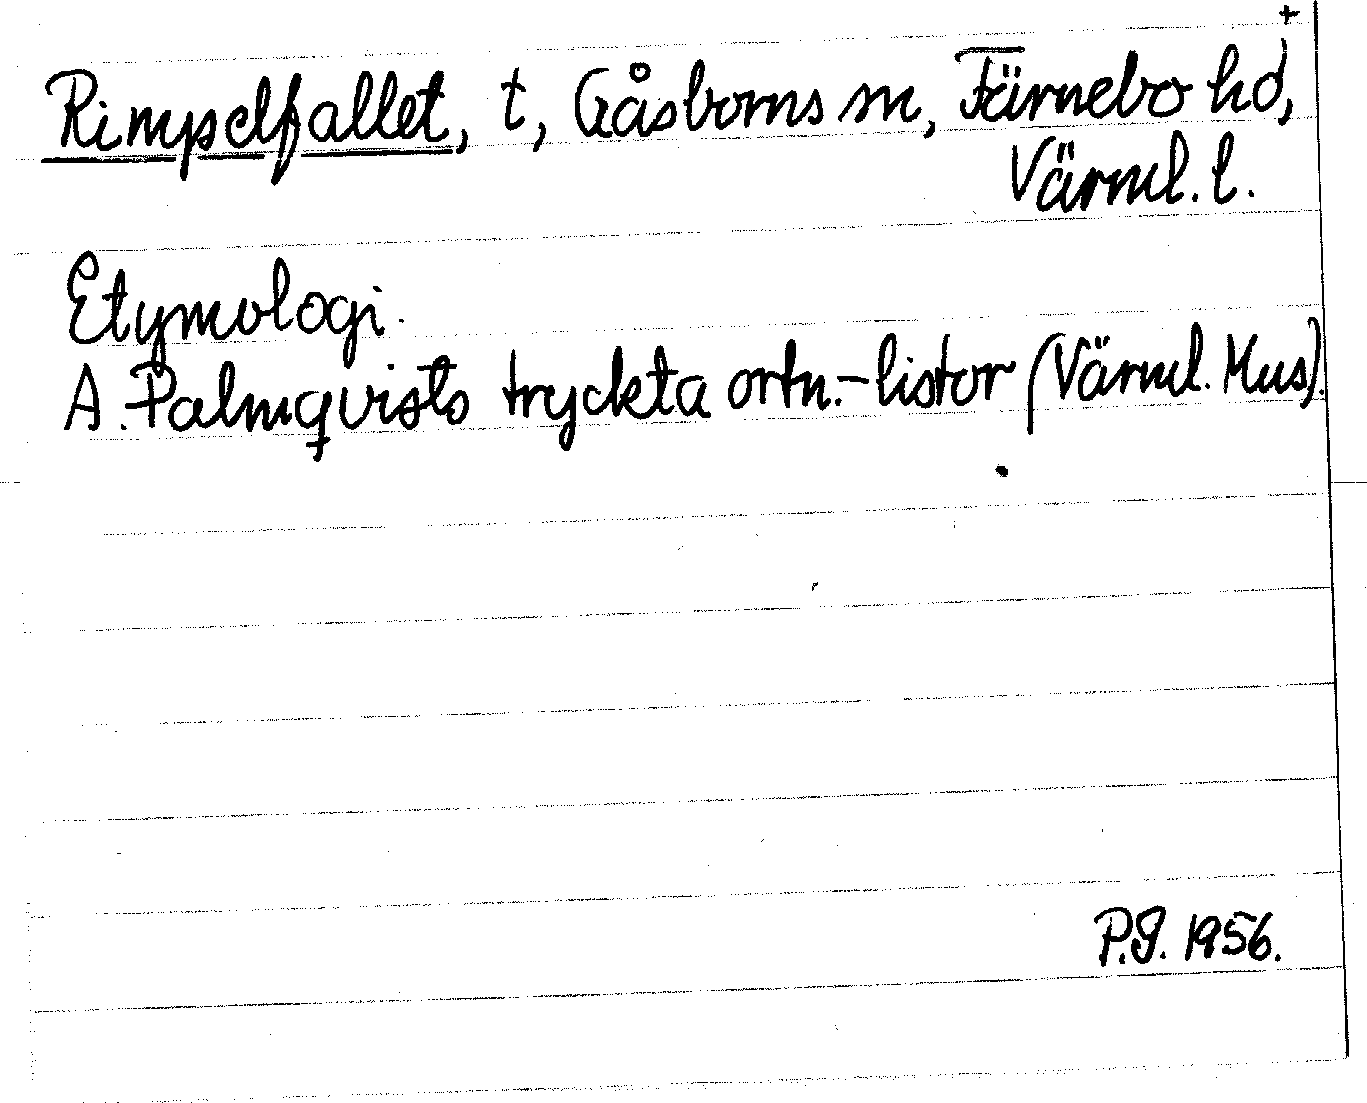 +
Rimpselfallet, t, Gåsborns sn, Färnebo hd,
Värml. l.
Etymologi.
A. Palmqvists tryckta ortn.-listor (Värml. Mus).
P.G. 1956.